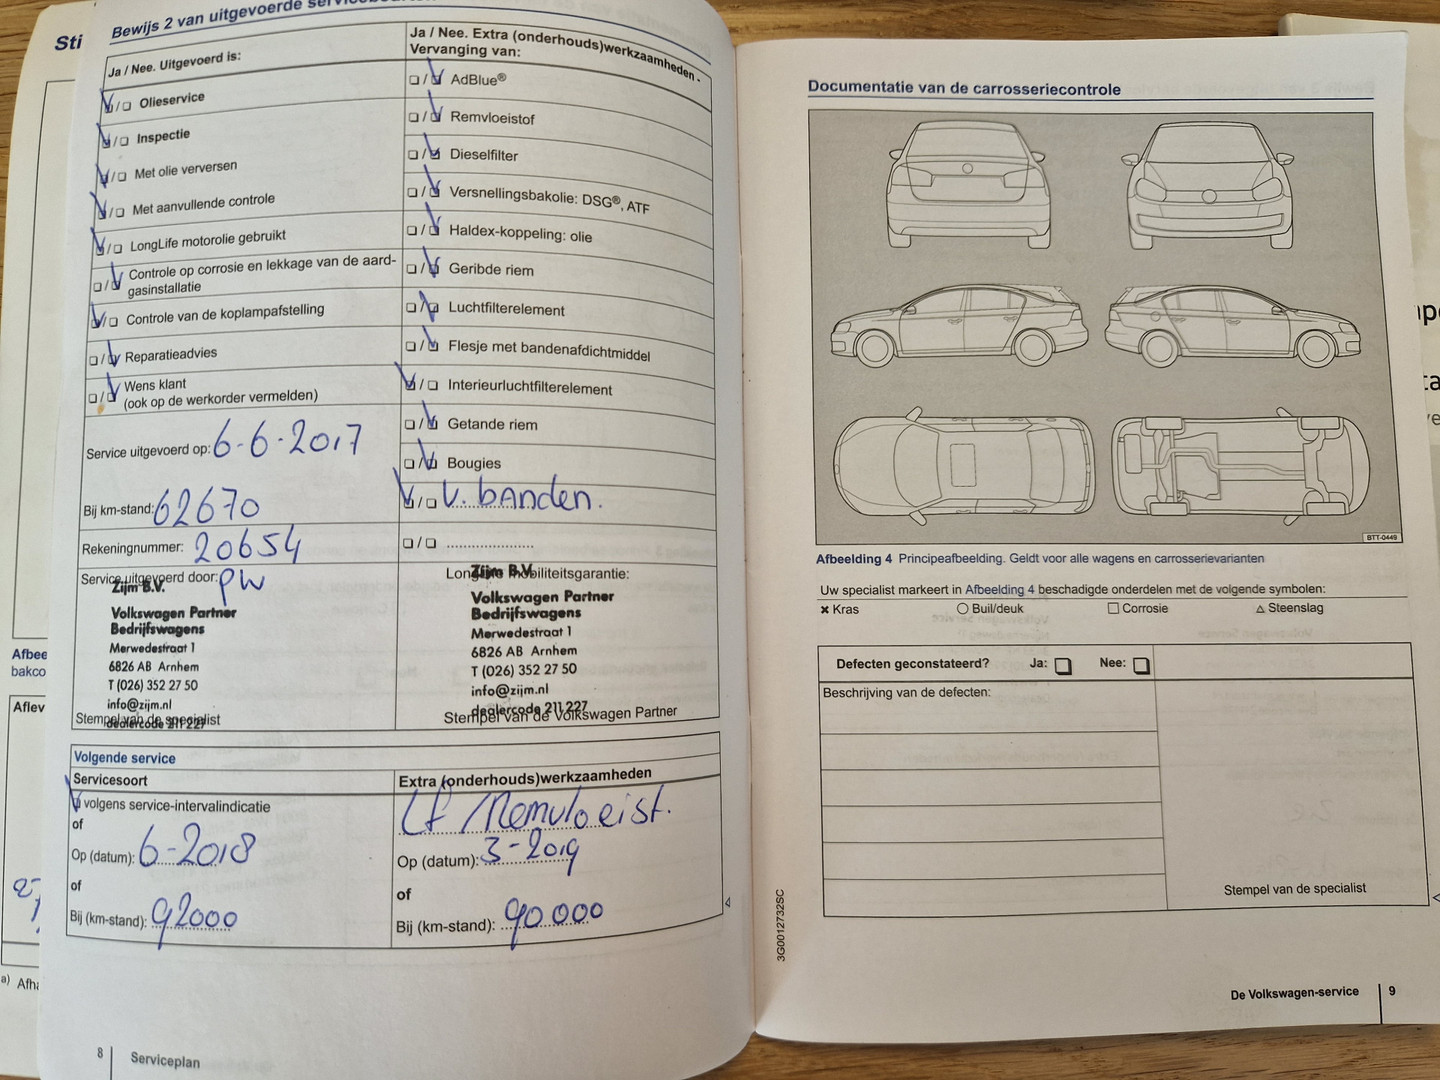 Sti
Afbee
bakco
Aflev
a) Afha
Bewijs 2 van uitgevoerde
Ja / Nee. Uitgevoerd is:
Olieservice
Inspectie
Met olie verversen
Met aanvullende controle
LongLife motorolie gebruikt
Controle op corrosie en lekkage van de aard-
gasinstallatie
Controle van de koplampafstelling
Reparatieadvies
Wens klant
(ook op de werkorder vermelden)
Service uitgevoerd op: 6-6-2017
Bij km-stand: 62670
Rekeningnummer: 20654
Service uitgevoerd door: PW
Zijm B.V.
Volkswagen Partner
Bedrijfswagens
Merwedestraat 1
6826 AB Arnhem
T (026) 352 27 50
info@zijm.nl
dealercode 211 227
Stempel van de specialist
Ja / Nee. Extra (onderhouds)werkzaamheden -
Vervanging van:
AdBlue®
Remvloeistof
Dieselfilter
Versnellingsbakolie: DSG®, ATF
Haldex-koppeling: olie
Geribde riem
Luchtfilterelement
Flesje met bandenafdichtmiddel
Interieurluchtfilterelement
Getande riem
Bougies
V. banden.
LongLife mobiliteitsgarantie:
Zijm B.V.
Volkswagen Partner
Bedrijfswagens
Merwedestraat 1
6826 AB Arnhem
T (026) 352 27 50
info@zijm.nl
dealercode 211 227
Stempel van de Volkswagen Partner
Volgende service
Servicesoort
volgens service-intervalindicatie
of
Op (datum): 6-2018
of
Bij (km-stand): 92000
Extra (onderhouds)werkzaamheden
Lf / Remvloeist.
Op (datum): 3-2019
of
Bij (km-stand): 90.000
8 Serviceplan
Documentatie van de carrosseriecontrole
BTT-0449
Afbeelding 4 Principeafbeelding. Geldt voor alle wagens en carrosserievarianten
Uw specialist markeert in Afbeelding 4 beschadigde onderdelen met de volgende symbolen:
Kras Buil/deuk Corrosie Steenslag
Defecten geconstateerd? Ja: Nee:
Beschrijving van de defecten:
Stempel van de specialist
3G0012732SC
De Volkswagen-service 9